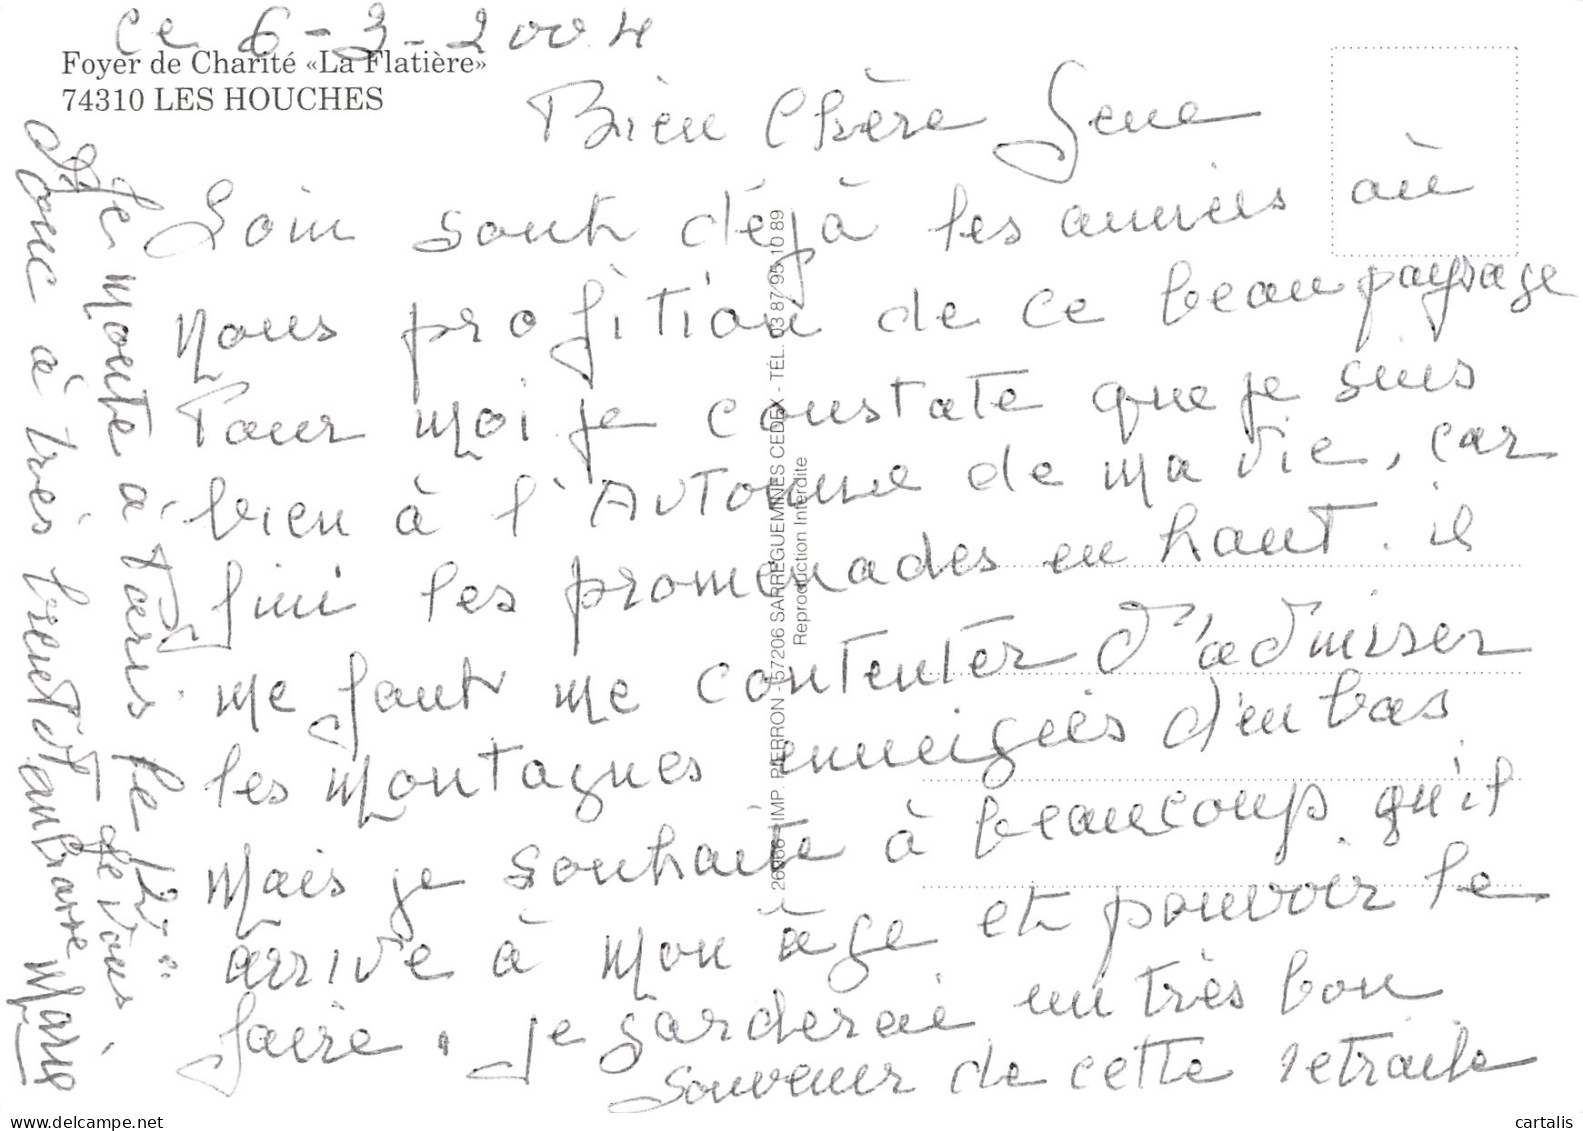 ce 6-3-2004
Foyer de Charité «La Flatière»
74310 LES HOUCHES
Bien Chère Gene
Loin sont déjà les années où
nous profition de ce beau paysage
Pour moi je constate que je suis
bien à l'Automne de ma vie, car
fini les promenades en haut. il
me faut me contenter d'admirer
les montagnes enneigées d'en bas
Mais je souhaite à beaucoup qu'il
arrive à mon âge et pouvoir le
faire. je garderai un très bon
souvenir de cette retraite
Je monte à Paris le 12.
Donc à très bientôt Je vous
embrasse Marie
26966 IMP. PIERRON - 57206 SARREGUEMINES CEDEX - TÉL. 03 87 95 10 89
Reproduction Interdite
delcampe.net
cartalis